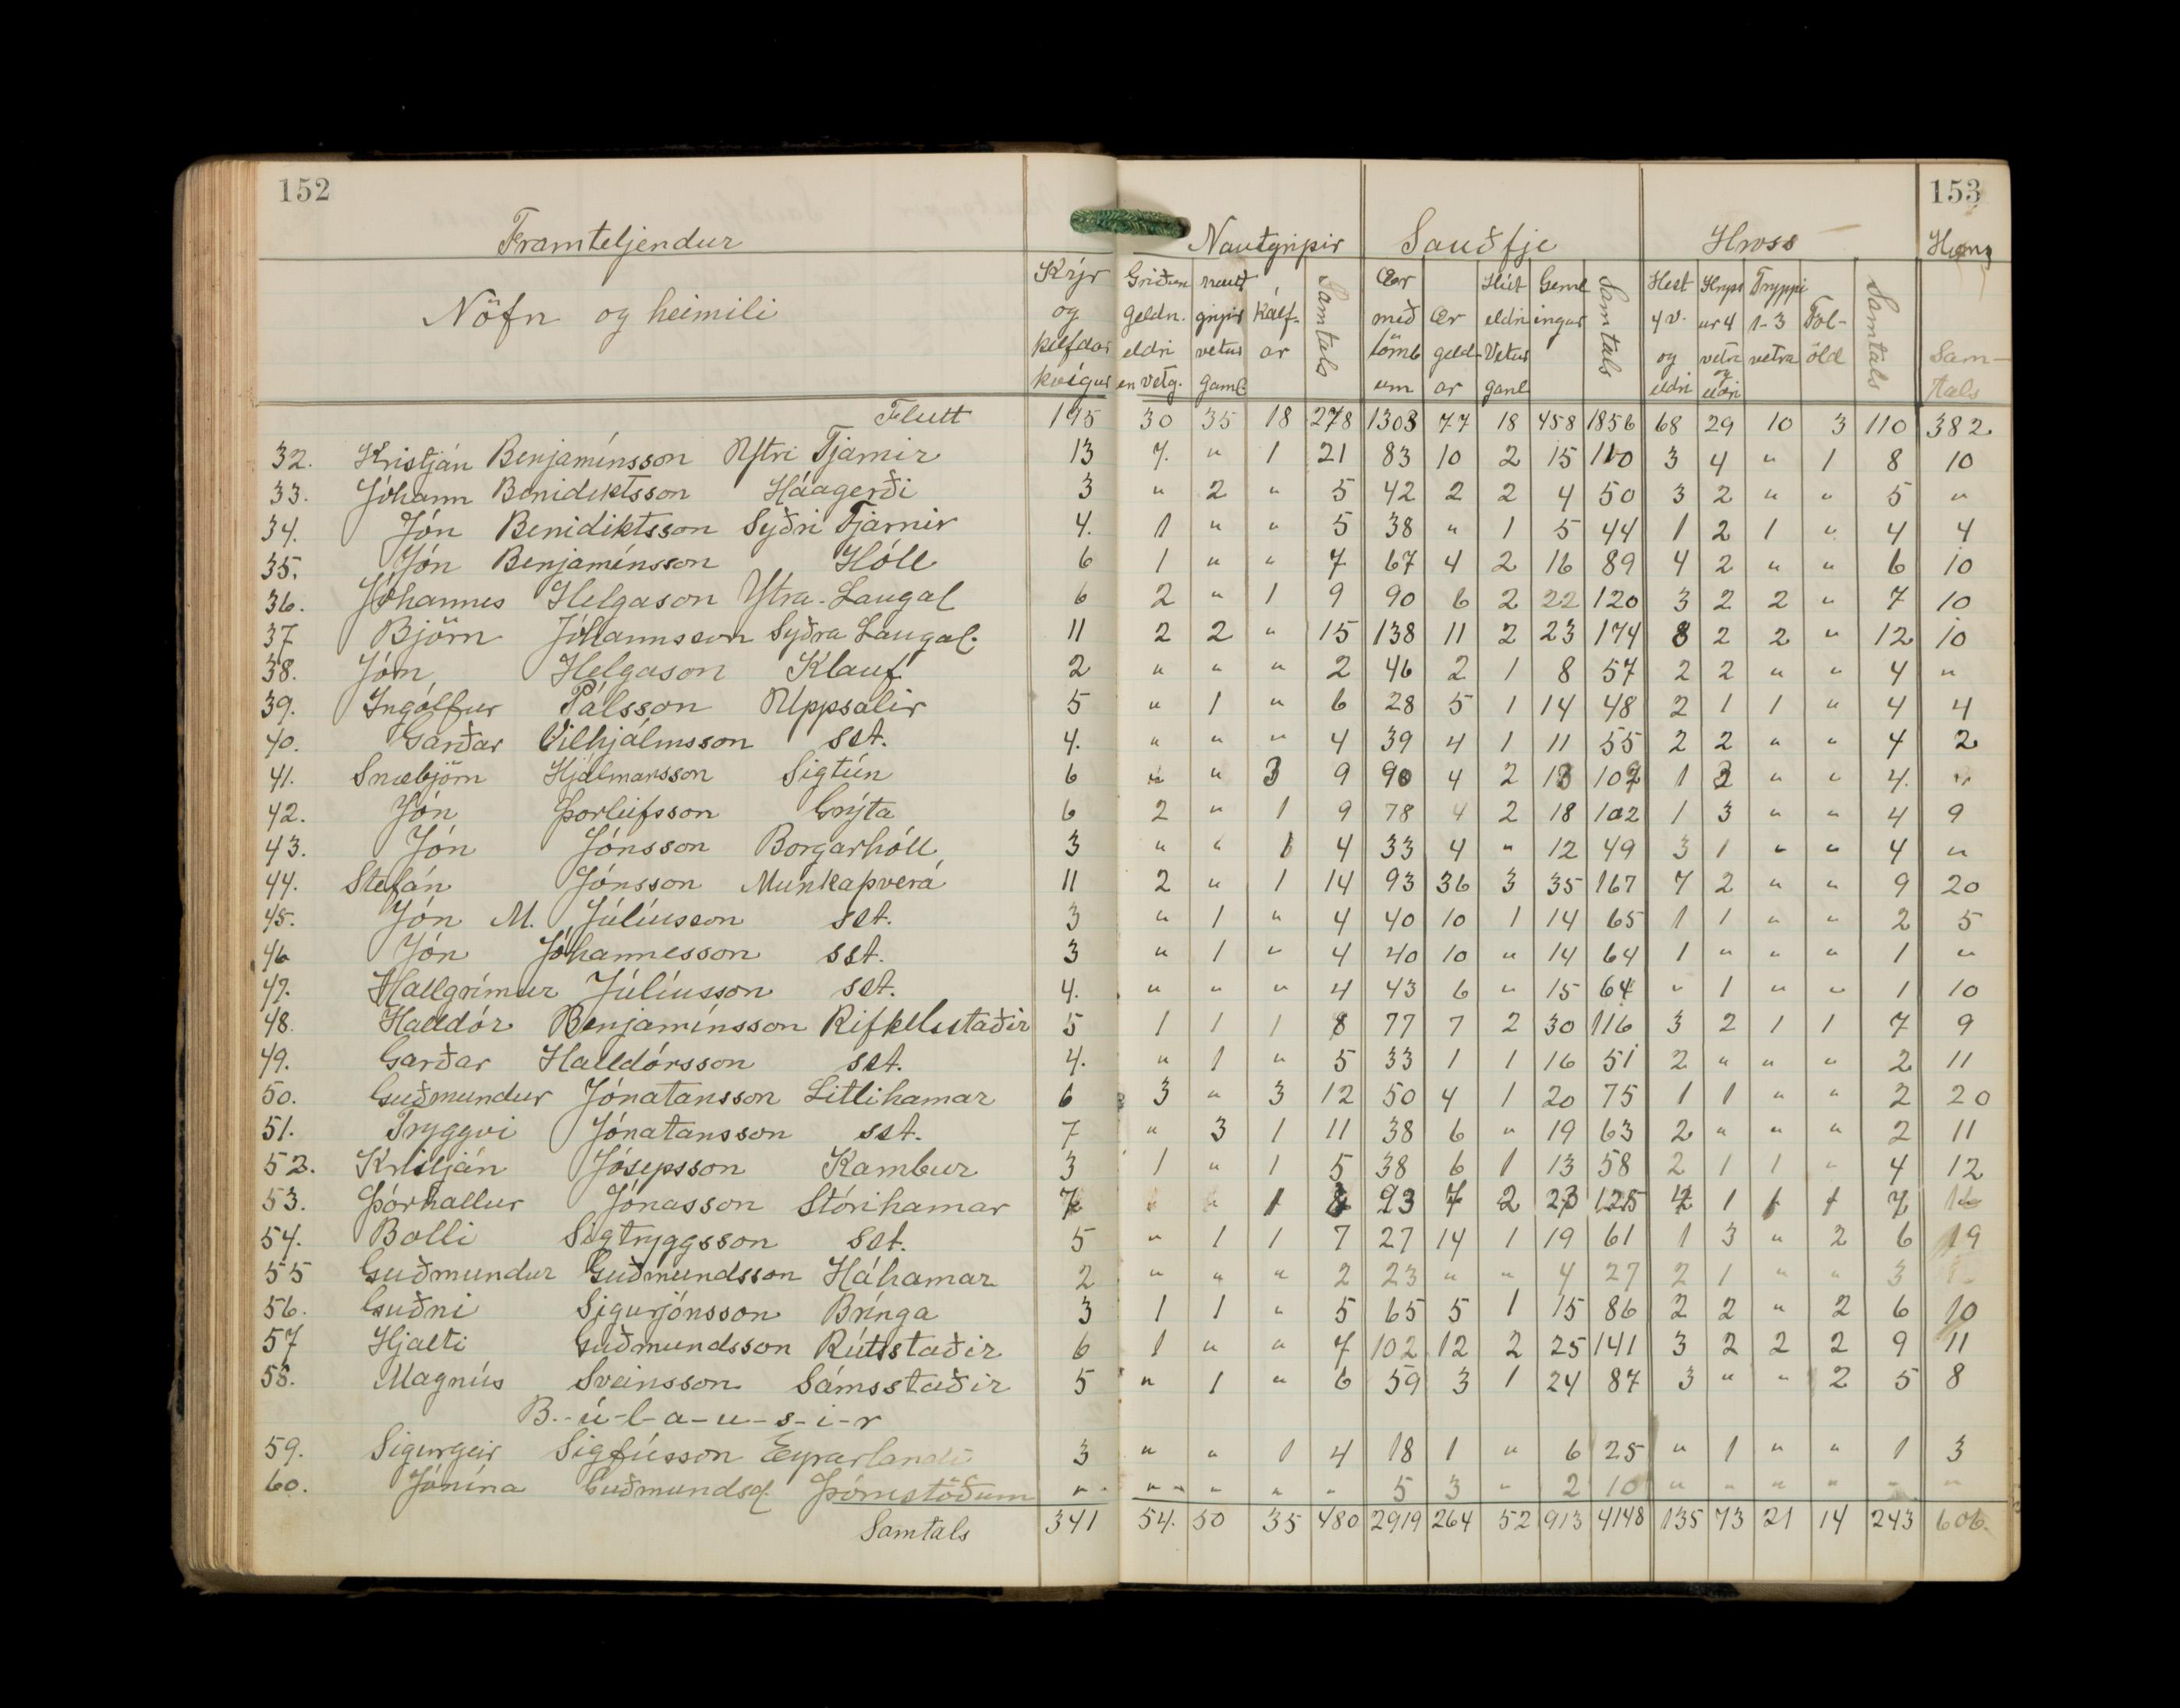 152
153
Framteljendur
Nautgripir Sauðfje Hross Hæns
Nöfn og heimili
Kýr og kelfdar kvígur
Griðun geldn. eldri en vetg.
naut gripir vetur gaml
Kálf- ar
Samtals
Ær með lömb um
Ær geld- ar
Hrút eldri Vetur gaml
Geml ingar
Samtals
Hest 4 v. og eldri
Hryss ur 4 vetra og eldri
Tryppi 1-3 vetra
Fol- öld
Samtals
Sam- tals
Flutt 195 30 35 18 278 1303 77 18 458 1856 68 29 10 3 110 382
32. Kristján Benjamínsson Ytri Tjarnir 13 7. " 1 21 83 10 2 15 110 3 4 " 1 8 10
33. Jóhann Benidiktsson Háagerði 3 " 2 " 5 42 2 2 4 50 3 2 " " 5 "
34. Jón Benidiktsson Syðri Tjarnir 4. 1 " " 5 38 " 1 5 44 1 2 1 " 4 4
35. Jón Benjamínsson Hóll 6 1 " " 7 67 4 2 16 89 4 2 " " 6 10
36. Jóhannes Helgason Ytra-Laugal 6 2 " 1 9 90 6 2 22 120 3 2 2 " 7 10
37 Björn Jóhannsson Syðra Laugal. 11 2 2 " 15 138 11 2 23 174 8 2 2 " 12 10
38. Jón Helgason Klauf 2 " " " 2 46 2 1 8 57 2 2 " " 4 "
39. Ingólfur Pálsson Uppsalir 5 " 1 " 6 28 5 1 14 48 2 1 1 " 4 4
40. Garðar Vilhjálmsson sst. 4. " " " 4 39 4 1 11 55 2 2 " " 4 2
41. Snæbjörn Hjálmarsson Sigtún 6 " " 3 9 90 4 2 13 109 1 3 " " 4. "
42. Jón Þorleifsson Grýta 6 2 " 1 9 78 4 2 18 102 1 3 " " 4 9
43. Jón Jónsson Borgarhóll 3 " " 1 4 33 4 " 12 49 3 1 " " 4 "
44. Stefán Jónsson Munkaþverá 11 2 " 1 14 93 36 3 35 167 7 2 " " 9 20
45. Jón M. Júlíusson sst. 3 " 1 " 4 40 10 1 14 65 1 1 " " 2 5
46 Jón Jóhannesson sst. 3 " 1 " 4 40 10 " 14 64 1 " " " 1 "
47. Hallgrímur Júlíusson sst. 4. " " " 4 43 6 " 15 64 " 1 " " 1 10
48. Halldór Benjamínsson Rifkelsstaðir 5 1 1 1 8 77 7 2 30 116 3 2 1 1 7 9
49. Garðar Halldórsson sst. 4. " 1 " 5 33 1 1 16 51 2 " " " 2 11
50. Guðmundur Jónatansson Litlihamar 6 3 " 3 12 50 4 1 20 75 1 1 " " 2 20
51. Tryggvi Jónatansson sst. 7 " 3 1 11 38 6 " 19 63 2 " " " 2 11
52. Kristján Jósepsson Kambur 3 1 " 1 5 38 6 1 13 58 2 1 1 " 4 12
53. Þórhallur Jónasson Stórihamar 7 " " 1 8 93 7 2 23 125 4 1 1 1 7
54. Bolli Sigtryggsson sst. 5 " 1 1 7 27 14 1 19 61 1 3 " 2 6 19
55 Guðmundur Guðmundsson Háhamar 2 " " " 2 23 " " 4 27 2 1 " " 3
56. Guðni Sigurjónsson Brínga 3 1 1 " 5 65 5 1 15 86 2 2 " 2 6 10
57 Hjalti Guðmundsson Rútsstaðir 6 1 " " 7 102 12 2 25 141 3 2 2 2 9 11
58. Magnús Sveinsson Sámsstaðir 5 " 1 " 6 59 3 1 24 87 3 " " 2 5 8
B.-ú-l-a-u-s-i-r
59. Sigurgeir Sigfússon Eyrarlandi 3 " " 1 4 18 1 " 6 25 " 1 " " 1 3
60. Jónína Guðmundsd. Þórustöðum " " " " " 5 3 " 2 10 " " " " " "
Samtals 341 54. 50 35 480 2919 264 52 913 4148 135 73 21 14 243 606.